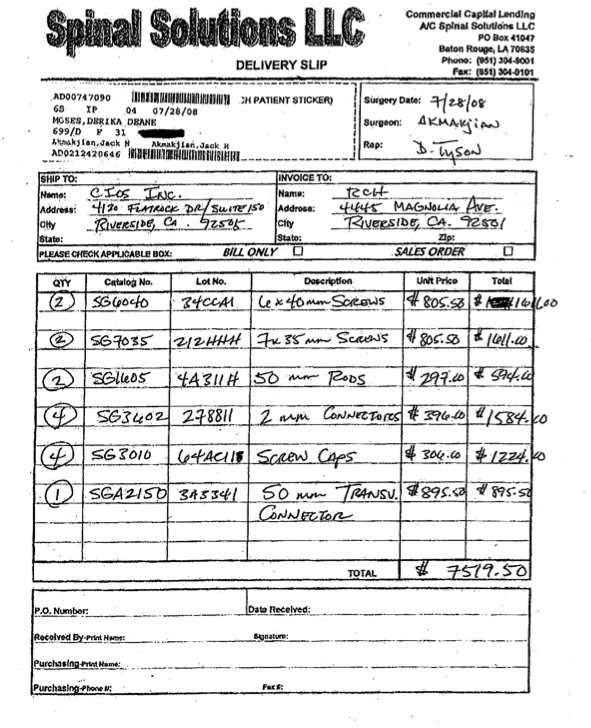 Spinal Solutions LLC
Commercial Capital Lending
A/C Spinal Solutions LLC
PO Box 41047
Baton Rouge, LA 70835
Phone: (951) 304-9001
Fax: (951) 304-0101
DELIVERY SLIP
AD00747090 CH PATIENT STICKER)
68 IP 04 07/28/08
MOSES, DERIKA DEANE
699/D F 31
Akmakjian, Jack H Akmakjian, Jack H
AD0212420646
Surgery Date: 7/28/08
Surgeon: AKMAKjiAN
Rep: D. TYSON
SHIP TO: INVOICE TO:
Name: CIOS INC. Name: RCH
Address: 4120 FLATROCK DR/SUITE 150 Address: 4445 MAGNOLIA AVE.
City RIVERSIDE, CA. 92505 City RIVERSIDE, CA. 92501
State: State: Zip:
PLEASE CHECK APPLICABLE BOX: BILL ONLY SALES ORDER
QTY Catalog No. Lot No. Description Unit Price Total
2 SG6040 34CCA1 6x40mm SCREWS $805.50 1611.00
2 SG7035 212HHH 7x35 mm SCREWS $805.50 $1611.00
2 SG1605 4A311H 50 mm RODS $297.00 $594.00
4 SG3602 278811 2 mm CONNECTORS $396.00 $1584.00
4 SG3010 SCREW CAPS $306.00 $1224.00
1 SGA2150 3A5341 50 mm TRANSV. $895.50 $895.50
CONNECTOR
TOTAL $ 7519.50
P.O. Number: Date Received:
Received By-Print Name: Signature:
Purchasing-Print Name:
Purchasing-Phone #: Fax #: